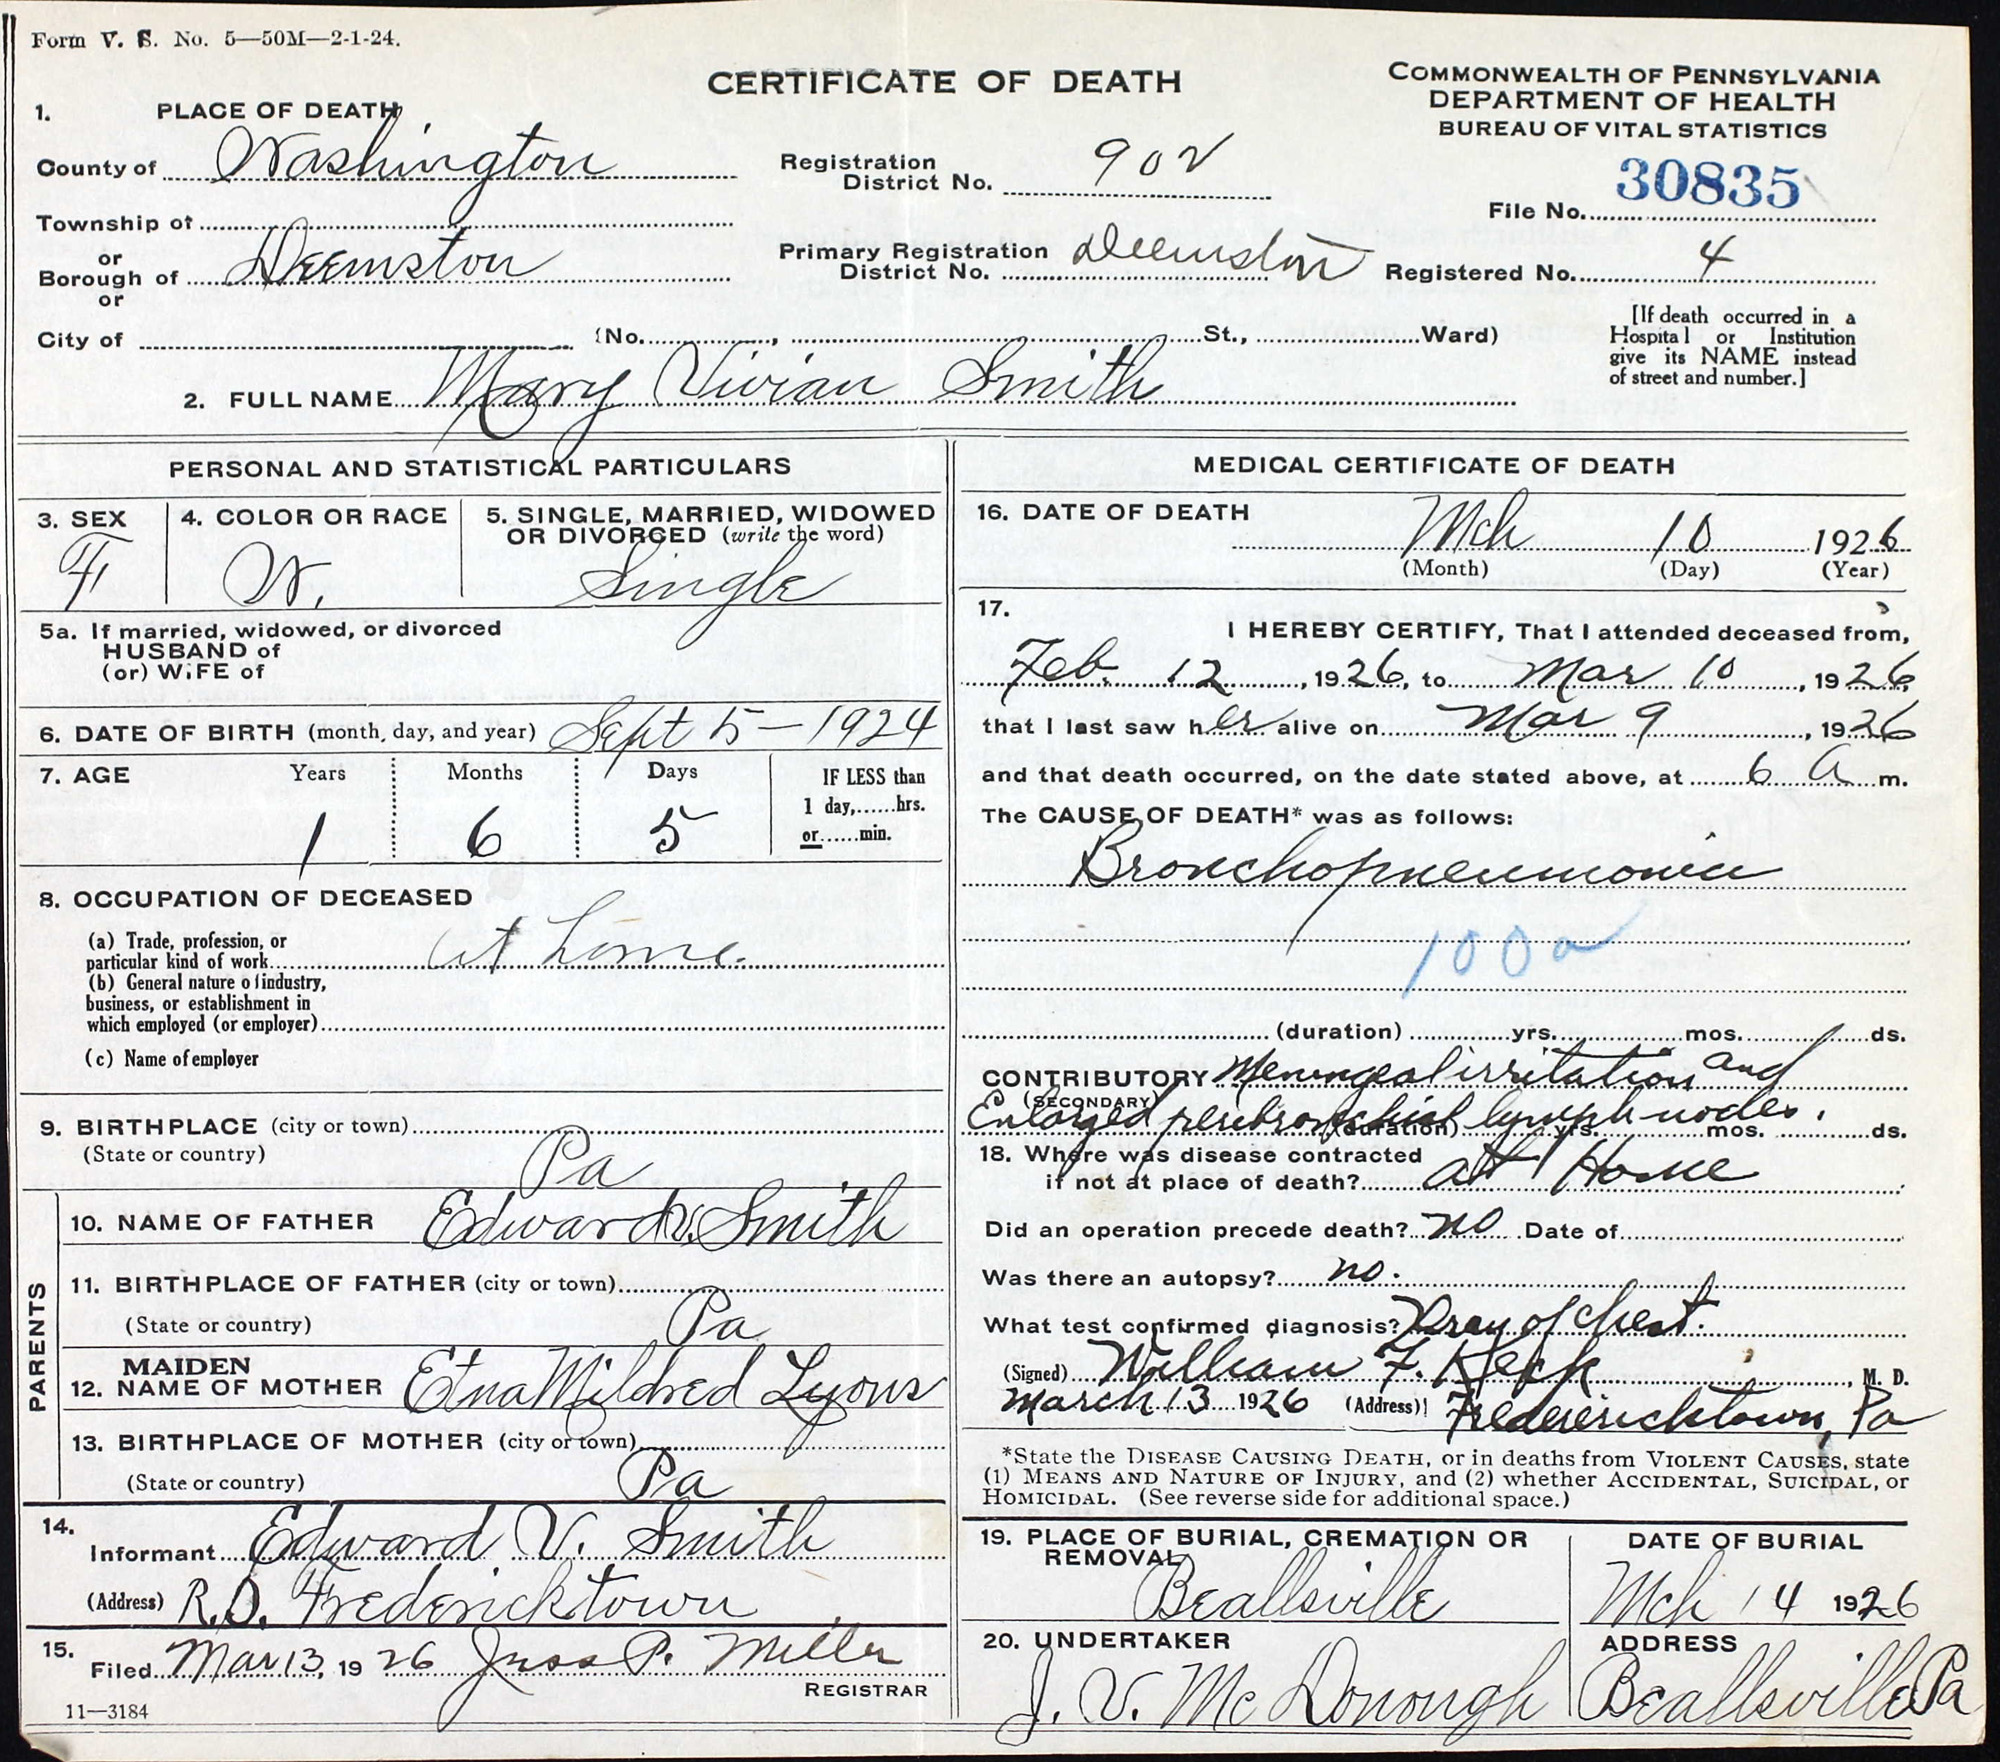 Form V. S. No. 5—50M—2-1-24.
CERTIFICATE OF DEATH
COMMONWEALTH OF PENNSYLVANIA
DEPARTMENT OF HEALTH
BUREAU OF VITAL STATISTICS
1. PLACE OF DEATH
County of Washington
Registration District No. 902
File No. 30835
Township of
or
Borough of Deemston
or
Primary Registration District No. Deemston
Registered No. 4
City of (No. , St., Ward)
[If death occurred in a
Hospital or Institution
give its NAME instead
of street and number.]
2. FULL NAME Mary Vivian Smith
PERSONAL AND STATISTICAL PARTICULARS
3. SEX F
4. COLOR OR RACE W.
5. SINGLE, MARRIED, WIDOWED
OR DIVORCED (write the word)
Single
5a. If married, widowed, or divorced
HUSBAND of
(or) WIFE of
6. DATE OF BIRTH (month, day, and year) Sept 5 - 1924
7. AGE Years Months Days IF LESS than
1 day,......hrs.
or......min.
1 6 5
8. OCCUPATION OF DECEASED
(a) Trade, profession, or
particular kind of work at home.
(b) General nature of industry,
business, or establishment in
which employed (or employer)
(c) Name of employer
9. BIRTHPLACE (city or town)
(State or country) Pa
PARENTS
10. NAME OF FATHER Edward V. Smith
11. BIRTHPLACE OF FATHER (city or town)
(State or country) Pa
MAIDEN
12. NAME OF MOTHER Etna Mildred Lyons
13. BIRTHPLACE OF MOTHER (city or town)
(State or country) Pa
14.
Informant Edward V. Smith
(Address) R.D. Fredericktown
15.
Filed Mar 13, 1926 P. Miller
REGISTRAR
11—3184
MEDICAL CERTIFICATE OF DEATH
16. DATE OF DEATH
Mch 10 1926
(Month) (Day) (Year)
17.
I HEREBY CERTIFY, That I attended deceased from,
Feb. 12, 1926, to Mar 10, 1926,
that I last saw her alive on Mar 9, 1926
and that death occurred, on the date stated above, at 6 A m.
The CAUSE OF DEATH* was as follows:
Bronchopneumonia
100a
(duration) yrs. mos. ds.
CONTRIBUTORY Meningeal irritation and
(SECONDARY)
Enlarged peribronchial lymph-nodes.
(duration) yrs. mos. ds.
18. Where was disease contracted
if not at place of death? at Home
Did an operation precede death? no Date of
Was there an autopsy? no.
What test confirmed diagnosis? Xray of chest.
(Signed) William F. Keck, M. D.
March 13 1926 (Address) Fredericktown, Pa
*State the DISEASE CAUSING DEATH, or in deaths from VIOLENT CAUSES, state
(1) MEANS AND NATURE OF INJURY, and (2) whether ACCIDENTAL, SUICIDAL, or
HOMICIDAL. (See reverse side for additional space.)
19. PLACE OF BURIAL, CREMATION OR
REMOVAL
Beallsville
DATE OF BURIAL
Mch 14 1926
20. UNDERTAKER
J. V. McDonough
ADDRESS
Beallsville Pa